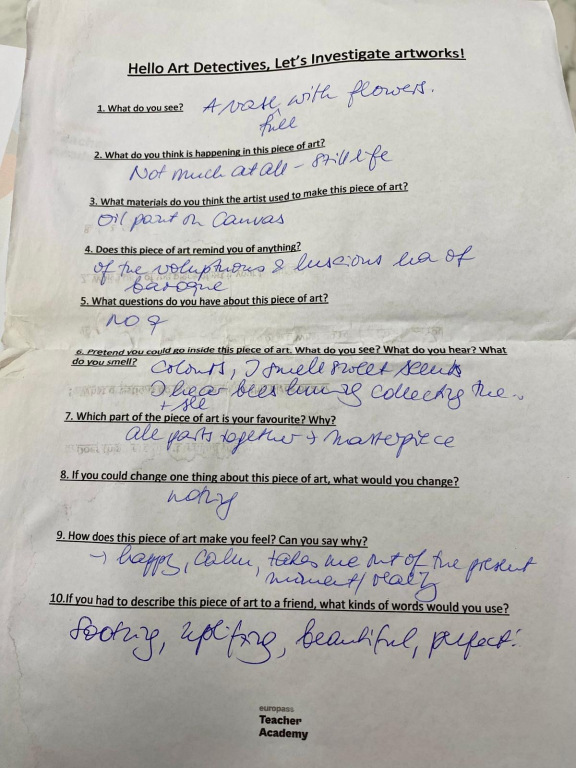 Hello Art Detectives, Let's Investigate artworks!
1. What do you see? A vase with flowers.
full
2. What do you think is happening in this piece of art?
Not much at all - still life
3. What materials do you think the artist used to make this piece of art?
Oil paint on Canvas
4. Does this piece of art remind you of anything?
of the voluptuous & luscious era of
baroque
5. What questions do you have about this piece of art?
no q
6. Pretend you could go inside this piece of art. What do you see? What do you hear? What
do you smell? Colours, I smell sweet scents
I hear bees collecting the
+ see
7. Which part of the piece of art is your favourite? Why?
all parts together → masterpiece
8. If you could change one thing about this piece of art, what would you change?
noting
9. How does this piece of art make you feel? Can you say why?
→ happy, calm, takes me out of the present
moment/reality
10.If you had to describe this piece of art to a friend, what kinds of words would you use?
Sooting, uplifting, beautiful, perfect!
europass
Teacher
Academy